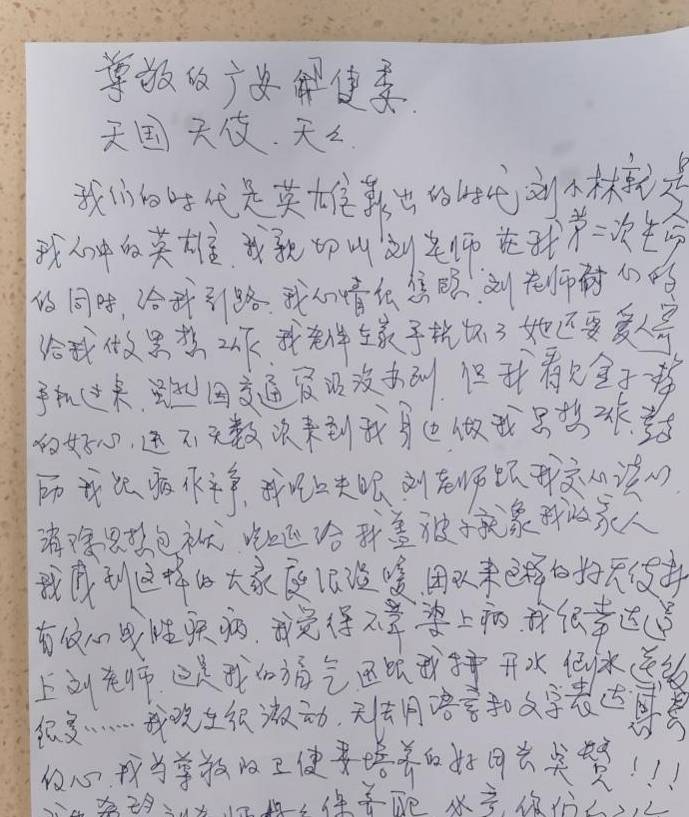 尊敬的广安 健委.
天国天使.天
我们的时代是英雄辈出的时代 刘小林就是
我心中的英雄.我亲切叫刘老师 在我第二次生命
的同时,给我引路.我心情很焦 .刘老师耐心的
给我做思想工作,我老伴在家手机坏了她还要爱人寄
手机过来.虽然因交通 没办到.但我看见金子一样
的好心.还不 数次来到我身边做我思想工作.鼓
我跟病作斗争,我晚上失眠 刘老师跟我交心谈心
消除思想包袱.晚上还给我盖被子就象我的家人
我感到这样的大家庭很温暖,因以来这样的好天使我
有信心战胜疾病.我觉得不幸染上病.我很幸运遇
上刘老师.这是我的福气 还跟我 开水 倒水 送
很多……我现在很激动.无法用语言和文字表达
的心.我为尊敬的卫健委培养的好同志点赞!!!
希望刘老师 保养